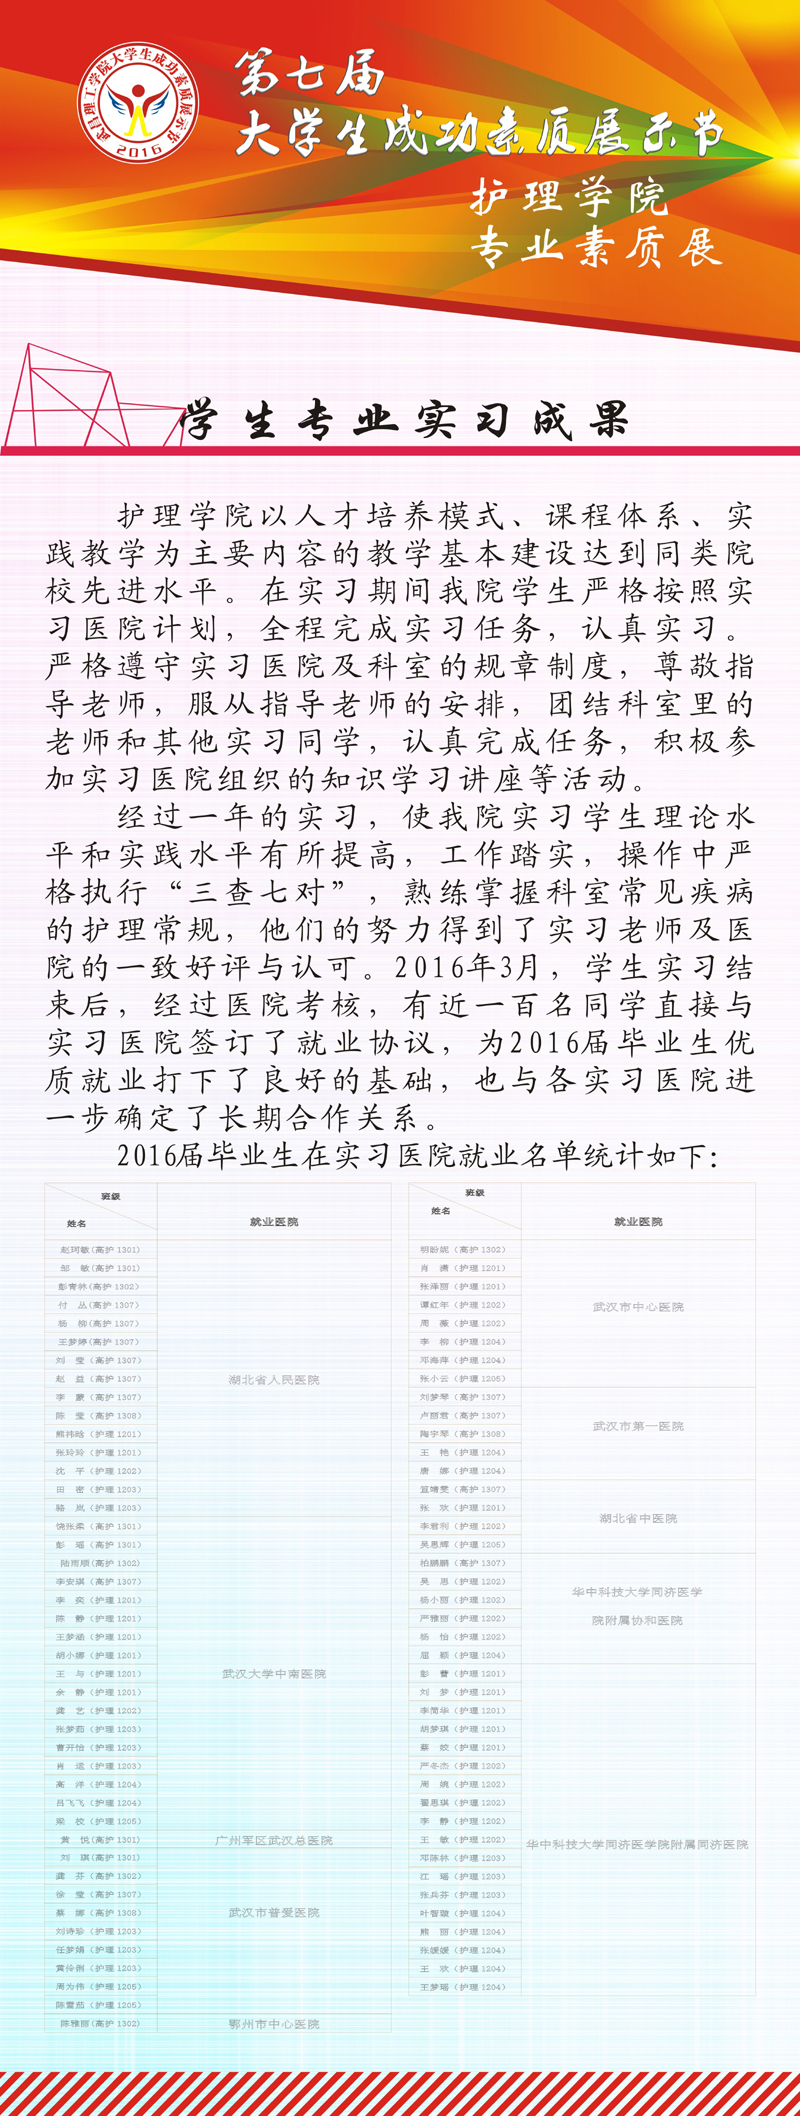 武昌理工学院大学生成功素质展示节
2016
第七届
大学生成功素质展示节
护理学院
专业素质展
学生专业实习成果
护理学院以人才培养模式、课程体系、实
践教学为主要内容的教学基本建设达到同类院
校先进水平。在实习期间我院学生严格按照实
习医院计划，全程完成实习任务，认真实习。
严格遵守实习医院及科室的规章制度，尊敬指
导老师，服从指导老师的安排，团结科室里的
老师和其他实习同学，认真完成任务，积极参
加实习医院组织的知识学习讲座等活动。
经过一年的实习，使我院实习学生理论水
平和实践水平有所提高，工作踏实，操作中严
格执行“三查七对”，熟练掌握科室常见疾病
的护理常规，他们的努力得到了实习老师及医
院的一致好评与认可。2016年3月，学生实习结
束后，经过医院考核，有近一百名同学直接与
实习医院签订了就业协议，为2016届毕业生优
质就业打下了良好的基础，也与各实习医院进
一步确定了长期合作关系。
2016届毕业生在实习医院就业名单统计如下：
班级
姓名
就业医院
赵珂敏(高护1301)
邹 敏(高护1301)
彭青林(高护1302)
付 丛(高护1307)
杨 柳(高护1307)
王梦婷(高护1307)
刘 莹（高护1307）
赵 益（高护1307）
李 蒙（高护1307）
陈 莹（高护1308）
熊祎晗（护理1201）
张玲玲（护理1201）
沈 平（护理1202）
田 密（护理1203）
骆 岚（护理1203）
湖北省人民医院
饶张柔（高护1301）
彭 瑶（高护1301）
陆雨顺(高护1302)
李安琪（高护1307）
李 奕（护理1201）
陈 静（护理1201）
王梦涵（护理1201）
胡小娜（护理1201）
王 与（护理1201）
余 静（护理1201）
龚 艺（护理1202）
张梦茹（护理1203）
曹开怡（护理1203）
肖 遥（护理1203）
高 洋（护理1204）
吕飞飞（护理1204）
梁 校（护理1205）
武汉大学中南医院
黄 悦(高护1301)
广州军区武汉总医院
刘 琪(高护1301)
龚 芬（高护1302）
徐 莹（高护1307）
蔡 娜（高护1308）
刘诗珍（护理1203）
任梦娟（护理1203）
黄伶俐（护理1203）
周为伟（护理1205）
陈雪茹（护理1205）
武汉市普爱医院
陈雅丽(高护1302)
鄂州市中心医院
班级
姓名
就业医院
明盼妮（高护1302）
肖 潇（护理1201）
张泽丽（护理1201）
谭红年（护理1202）
周 薇（护理1202）
李 柳（护理1204）
邓海萍（护理1204）
张小云（护理1205）
武汉市中心医院
刘梦琴（高护1307）
卢丽君（高护1307）
陶宇琴（高护1308）
王 艳（护理1204）
唐 娜（护理1204）
武汉市第一医院
靖雯（高护1307）
张 欢（护理1201）
李君利（护理1202）
吴思辉（护理1205）
湖北省中医院
柏鹏鹏（高护1307）
吴 思（护理1202）
杨小丽（护理1202）
严雅丽（护理1202）
杨 怡（护理1202）
屈 颖（护理1204）
华中科技大学同济医学
院附属协和医院
彭 蕾（护理1201）
刘 梦（护理1201）
李简华（护理1201）
胡梦琪（护理1201）
蔡 姣（护理1201）
严冬杰（护理1202）
周 婉（护理1202）
瞿思琪（护理1202）
李 静（护理1202）
王 敏（护理1202）
邓陈林（护理1203）
江 瑶（护理1203）
张兵芬（护理1203）
叶智璇（护理1204）
熊 丽（护理1204）
张媛媛（护理1204）
王 欢（护理1204）
王梦瑶（护理1204）
华中科技大学同济医学院附属同济医院